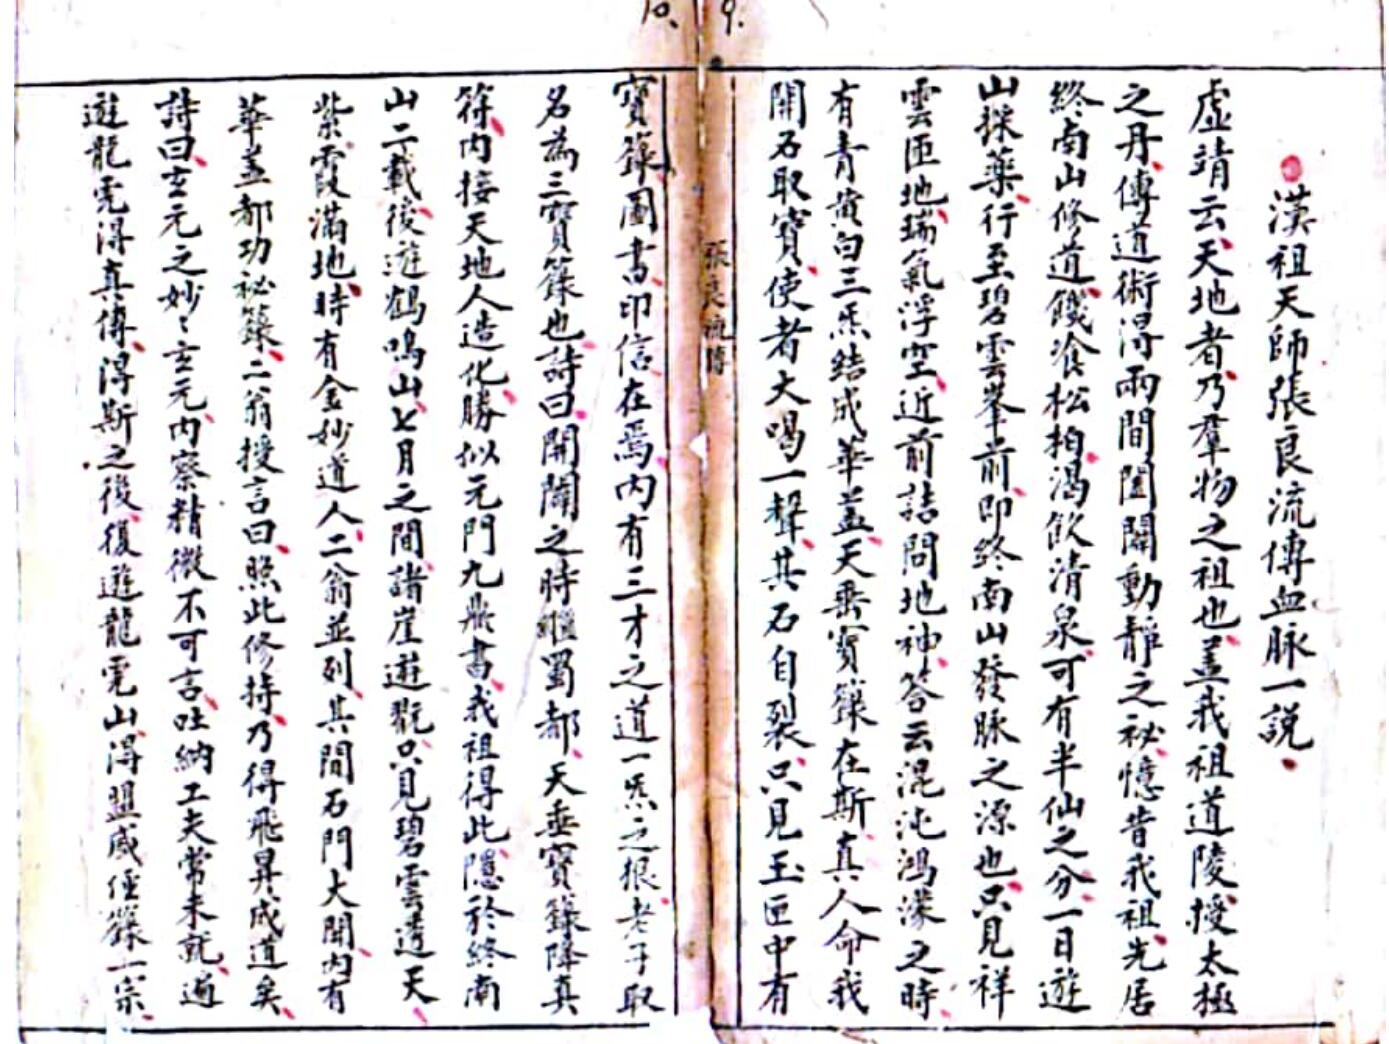 漢祖天師張良流傳血脉一説
虛靖云天地者乃羣物之祖也盖我祖道陵授太極
之丹傳道術得兩間闔闢動靜之秘憶昔我祖先居
終南山修道饑飡松柏渴飲清泉可有半仙之分一日遊
山採藥行至碧雲峯前即終南山發脉之源也只見祥
雲匝地瑞氣浮空近前詰問地神答云混沌鴻濛之時
有青黄白三炁結成華盖天垂寶籙在斯真人命我
開石取寶使者大喝一聲其石自裂只見玉匣中有
張良流傳
寶籙圖書印信在焉内有三才之道一炁之根老子取
名為三寶籙也詩曰開闢之時繼蜀都天垂寶籙降真
符内接天地人造化勝似元門九鼎書我祖得此隱於終南
山二載後遊鶴鳴山七月之間諸崖遊翫只見碧雲遶天
紫霞滿地時有金妙道人二翁並列其間石門大開内有
華盖都功秘籙二翁授言曰照此修持乃得飛昇成道矣
詩曰玄元之妙〻玄元内察精微不可言吐納工夫常未就遍
遊龍虎得真傳得斯之後復遊龍虎山得盟威經籙一宗
10.
9.